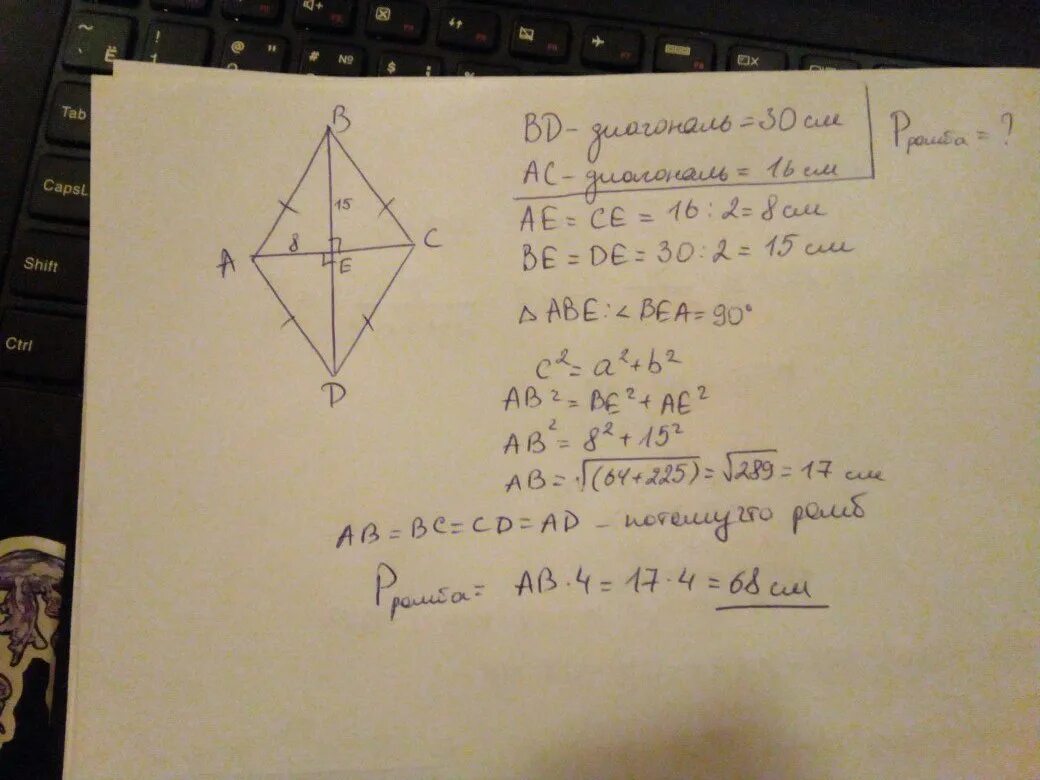 Tab
CapsL
Shift
Ctrl
B
15
8
A
E
C
D
BD - диагональ = 30 см
AC - диагональ = 16 см
Pромба = ?
AE = CE = 16 : 2 = 8 см
BE = DE = 30 : 2 = 15 см
△ ABE : ∠ BEA = 90°
c² = a² + b²
AB² = BE² + AE²
AB² = 8² + 15²
AB = √(64+225) = √289 = 17 см
AB = BC = CD = AD - потомучто ромб
Pромба = AB · 4 = 17 · 4 = 68 см